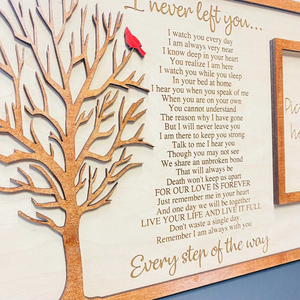 I never left you...
I watch you every day
I am always very near
I know deep in your heart
You realize I am here
I watch you while you sleep
In your bed at home
I hear you when you speak of me
When you are on your own
You cannot understand
The reason why I have gone
But I will never leave you
I am there to keep you strong
Talk to me I hear you
Though you may not see
We share an unbroken bond
That will always be
Death won't keep us apart
FOR OUR LOVE IS FOREVER
Just remember me in your heart
And one day we will be together
LIVE YOUR LIFE AND LIVE IT FULL
Don't waste a single day.
Remember I am always with you
Every step of the way